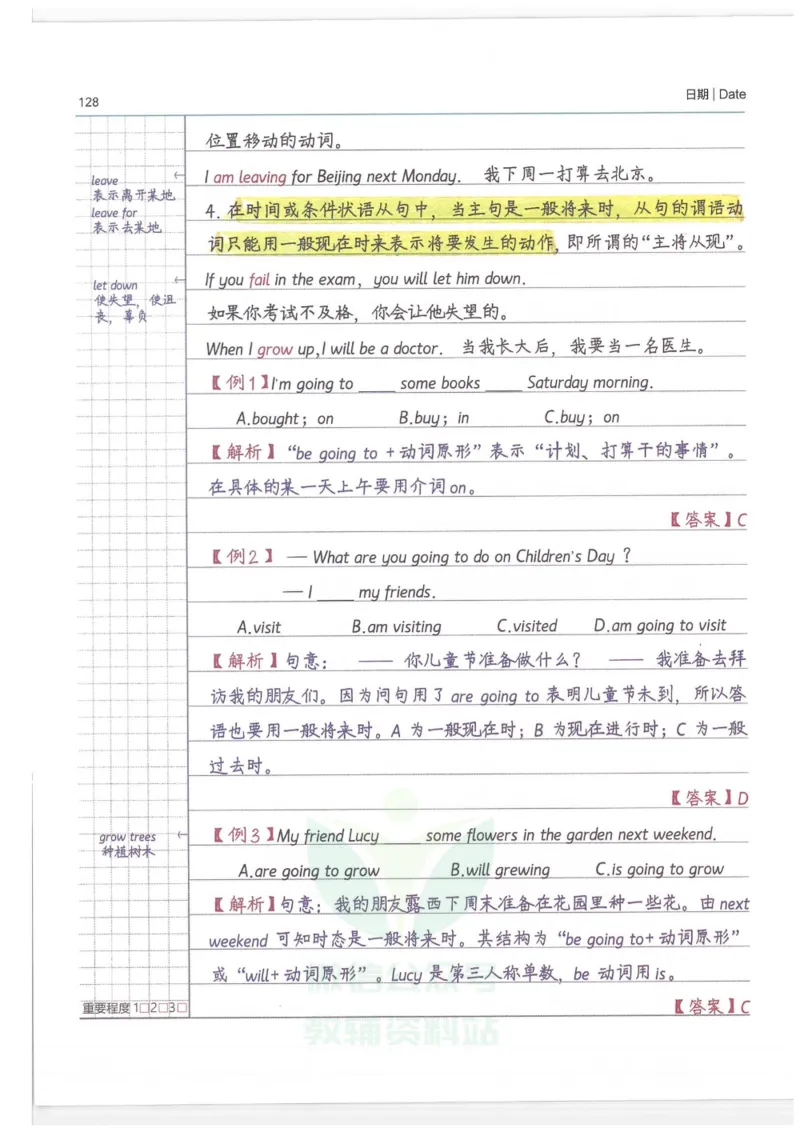 128
日期 | Date
位置移动的动词。
leave
表示离开某地
leave for
表示去某地
I am leaving for Beijing next Monday. 我下周一打算去北京。
4. 在时间或条件状语从句中，当主句是一般将来时，从句的谓语动
词只能用一般现在时来表示将要发生的动作，即所谓的“主将从现”。
let down
使失望，使沮
丧，辜负
If you fail in the exam, you will let him down.
如果你考试不及格，你会让他失望的。
When I grow up,I will be a doctor. 当我长大后，我要当一名医生。
【例1】I'm going to ____ some books ____ Saturday morning.
A.bought；on B.buy；in C.buy；on
【解析】“be going to +动词原形”表示“计划、打算干的事情”。
在具体的某一天上午要用介词on。
【答案】C
【例2】 — What are you going to do on Children's Day ？
— I ____ my friends.
A.visit B.am visiting C.visited D.am going to visit
【解析】句意： —— 你儿童节准备做什么？ —— 我准备去拜
访我的朋友们。因为问句用了 are going to 表明儿童节未到，所以答
语也要用一般将来时。A 为一般现在时；B 为现在进行时；C 为一般
过去时。
【答案】D
grow trees
种植树木
【例3】My friend Lucy ____ some flowers in the garden next weekend.
A.are going to grow B.will grewing C.is going to grow
【解析】句意：我的朋友露西下周末准备在花园里种一些花。由 next
weekend 可知时态是一般将来时。其结构为“be going to+动词原形”
或“will+动词原形”。Lucy 是第三人称单数，be 动词用is。
【答案】C
重要程度 1□2□3□
微信公众号
教辅资料站